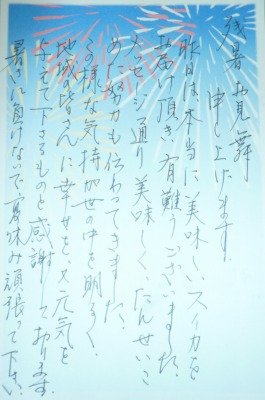 残暑お見舞
申し上げます.
昨日は本当に美味しいスイカを
お届け頂き有難うございました.
メッセージ通り美味しく、たんせいこ
めた努力も伝わってきました.
この様な気持が世の中を明るく、
地域の皆さんに幸せを、又元気を
与えて下さるものと感謝しております.
暑さに負けないで夏休み頑張って下さい